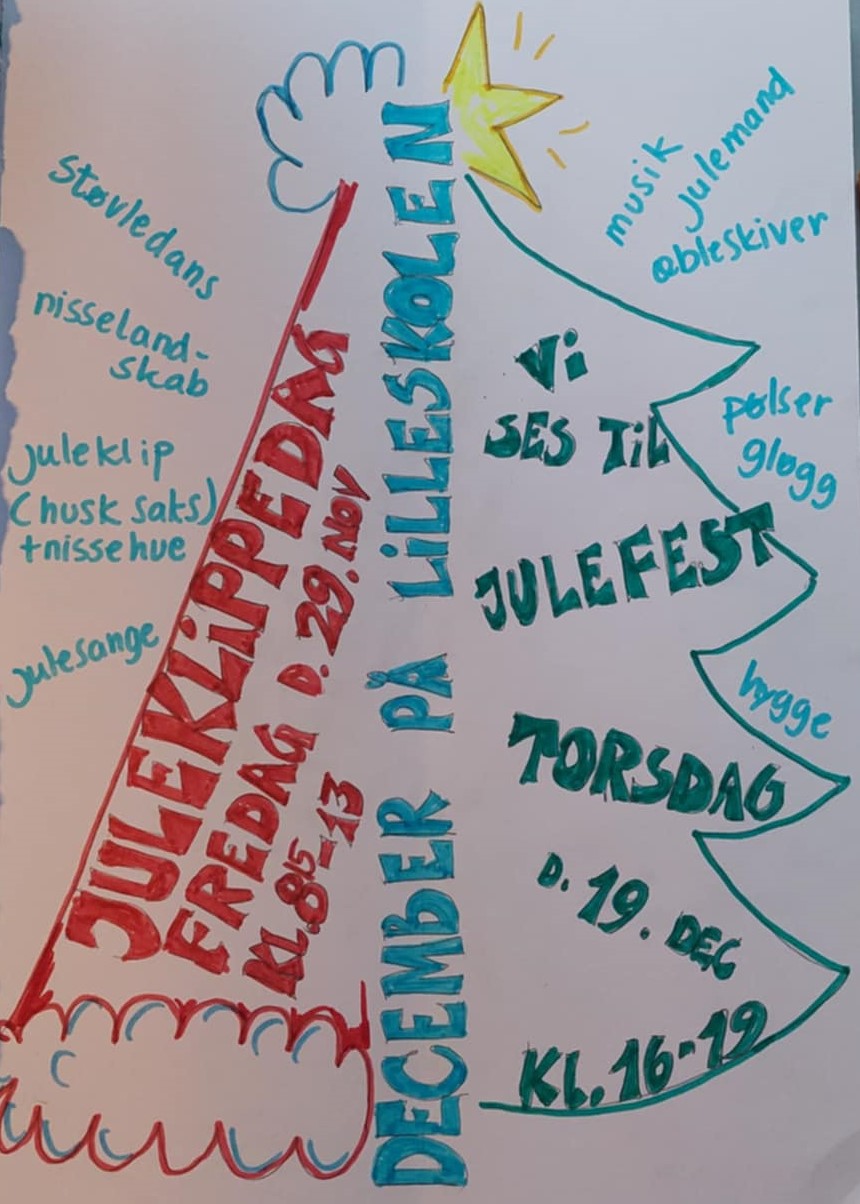 DECEMBER PÅ LILLESKOLEN
støvledans
nisseland-
skab
juleklip
(husk saks)
+nissehue
julesange
JULEKLiPPEDAG
FREDAG D. 29. NOV
KL. 8¹⁵-13
musik
julemand
æbleskiver
Vi
SES TiL
JULEFEST
TORSDAG
D. 19. DEC
KL. 16-19
pølser
gløgg
hygge